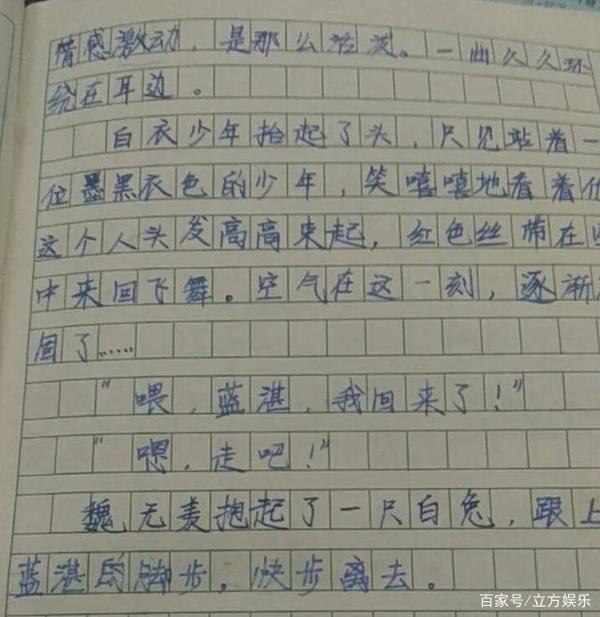 情感激动，是那么活泼。一曲久久环
绕在耳边。
白衣少年抬起了头，只见站着一
位墨黑衣色的少年，笑嘻嘻地看着他
这个人头发高高束起，红色丝带在
中来回飞舞。空气在这一刻，逐渐
固了……
“喂，蓝湛，我回来了！”
“嗯，走吧！”
魏无羡抱起了一只白兔，跟上
蓝湛的脚步，快步离去。
百家号/立方娱乐